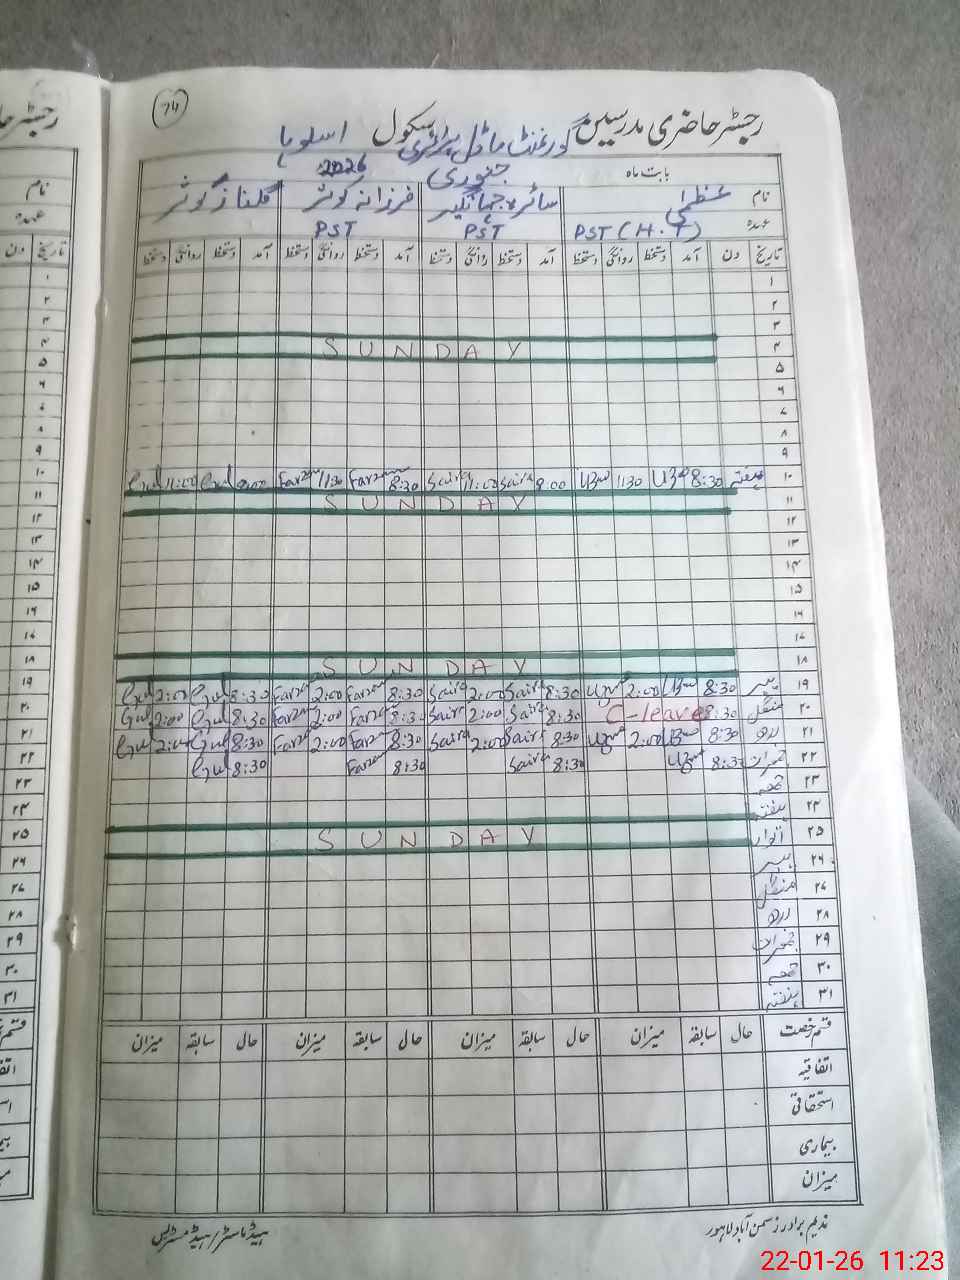 74
رجسٹر حاضری مدرسین گورنمنٹ ماڈل پرائمری سکول
بابت ماہ جنوری 2026
نام عظمیٰ سائرہ جہانگیر فرزانہ کوثر گلناز کوثر
عہدہ PST (H.T) PST PST
تاریخ دن آمد دستخط روانگی دستخط آمد دستخط روانگی دستخط آمد دستخط روانگی دستخط آمد دستخط روانگی دستخط
۱
۲
۳
۴ SUNDAY
۵
۶
۷
۸
۹
۱۰ ہفتہ 8:30 Uzma 11:30 Uzma 9:00 Saira 11:00 Saira 8:30 Farzan 11:30 Farzan 9:00 Gul 11:00 Gul
۱۱ SUNDAY
۱۲
۱۳
۱۴
۱۵
۱۶
۱۷
۱۸ SUNDAY
۱۹ پیر 8:30 Uzma 2:00 Uzma 8:30 Saira 2:00 Saira 8:30 Farzan 2:00 Farzan 8:30 Gul 2:00 Gul
۲۰ منگل 8:30 C-leave 8:30 Saira 2:00 Saira 8:30 Farzan 2:00 Farzan 8:30 Gul 2:00 Gul
۲۱ بدھ 8:30 Uzma 2:00 Uzma 8:30 Saira 2:00 Saira 8:30 Farzan 2:00 Farzan 8:30 Gul 2:00 Gul
۲۲ جمعرات 8:30 Uzma 8:30 Saira 8:30 Farzan 8:30 Gul
۲۳ جمعہ
۲۴ ہفتہ
۲۵ اتوار SUNDAY
۲۶ پیر
۲۷ منگل
۲۸ بدھ
۲۹ جمعرات
۳۰ جمعہ
۳۱ ہفتہ
قسم رخصت حال سابقہ میزان حال سابقہ میزان حال سابقہ میزان حال سابقہ میزان
اتفاقیہ
استحقاقی
بیماری
میزان
ندیم برادرز سمن آباد لاہور ہیڈ ماسٹر/ہیڈ مسٹریس
22-01-26 11:23